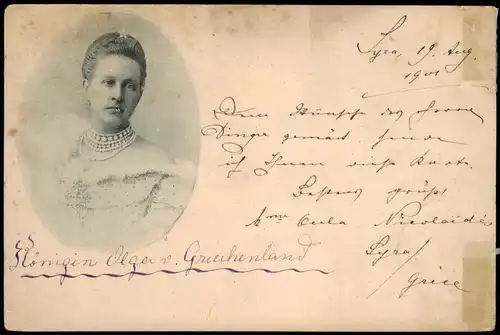 Syra, 19. Aug.
1901
Dem Wunsche des Herrn
Dinge gemäß sende
ich Ihnen diese Karte.
Bestens grüßt
Mme Nicolaïdes
Syra
Grèce
Königin Olga v. Griechenland